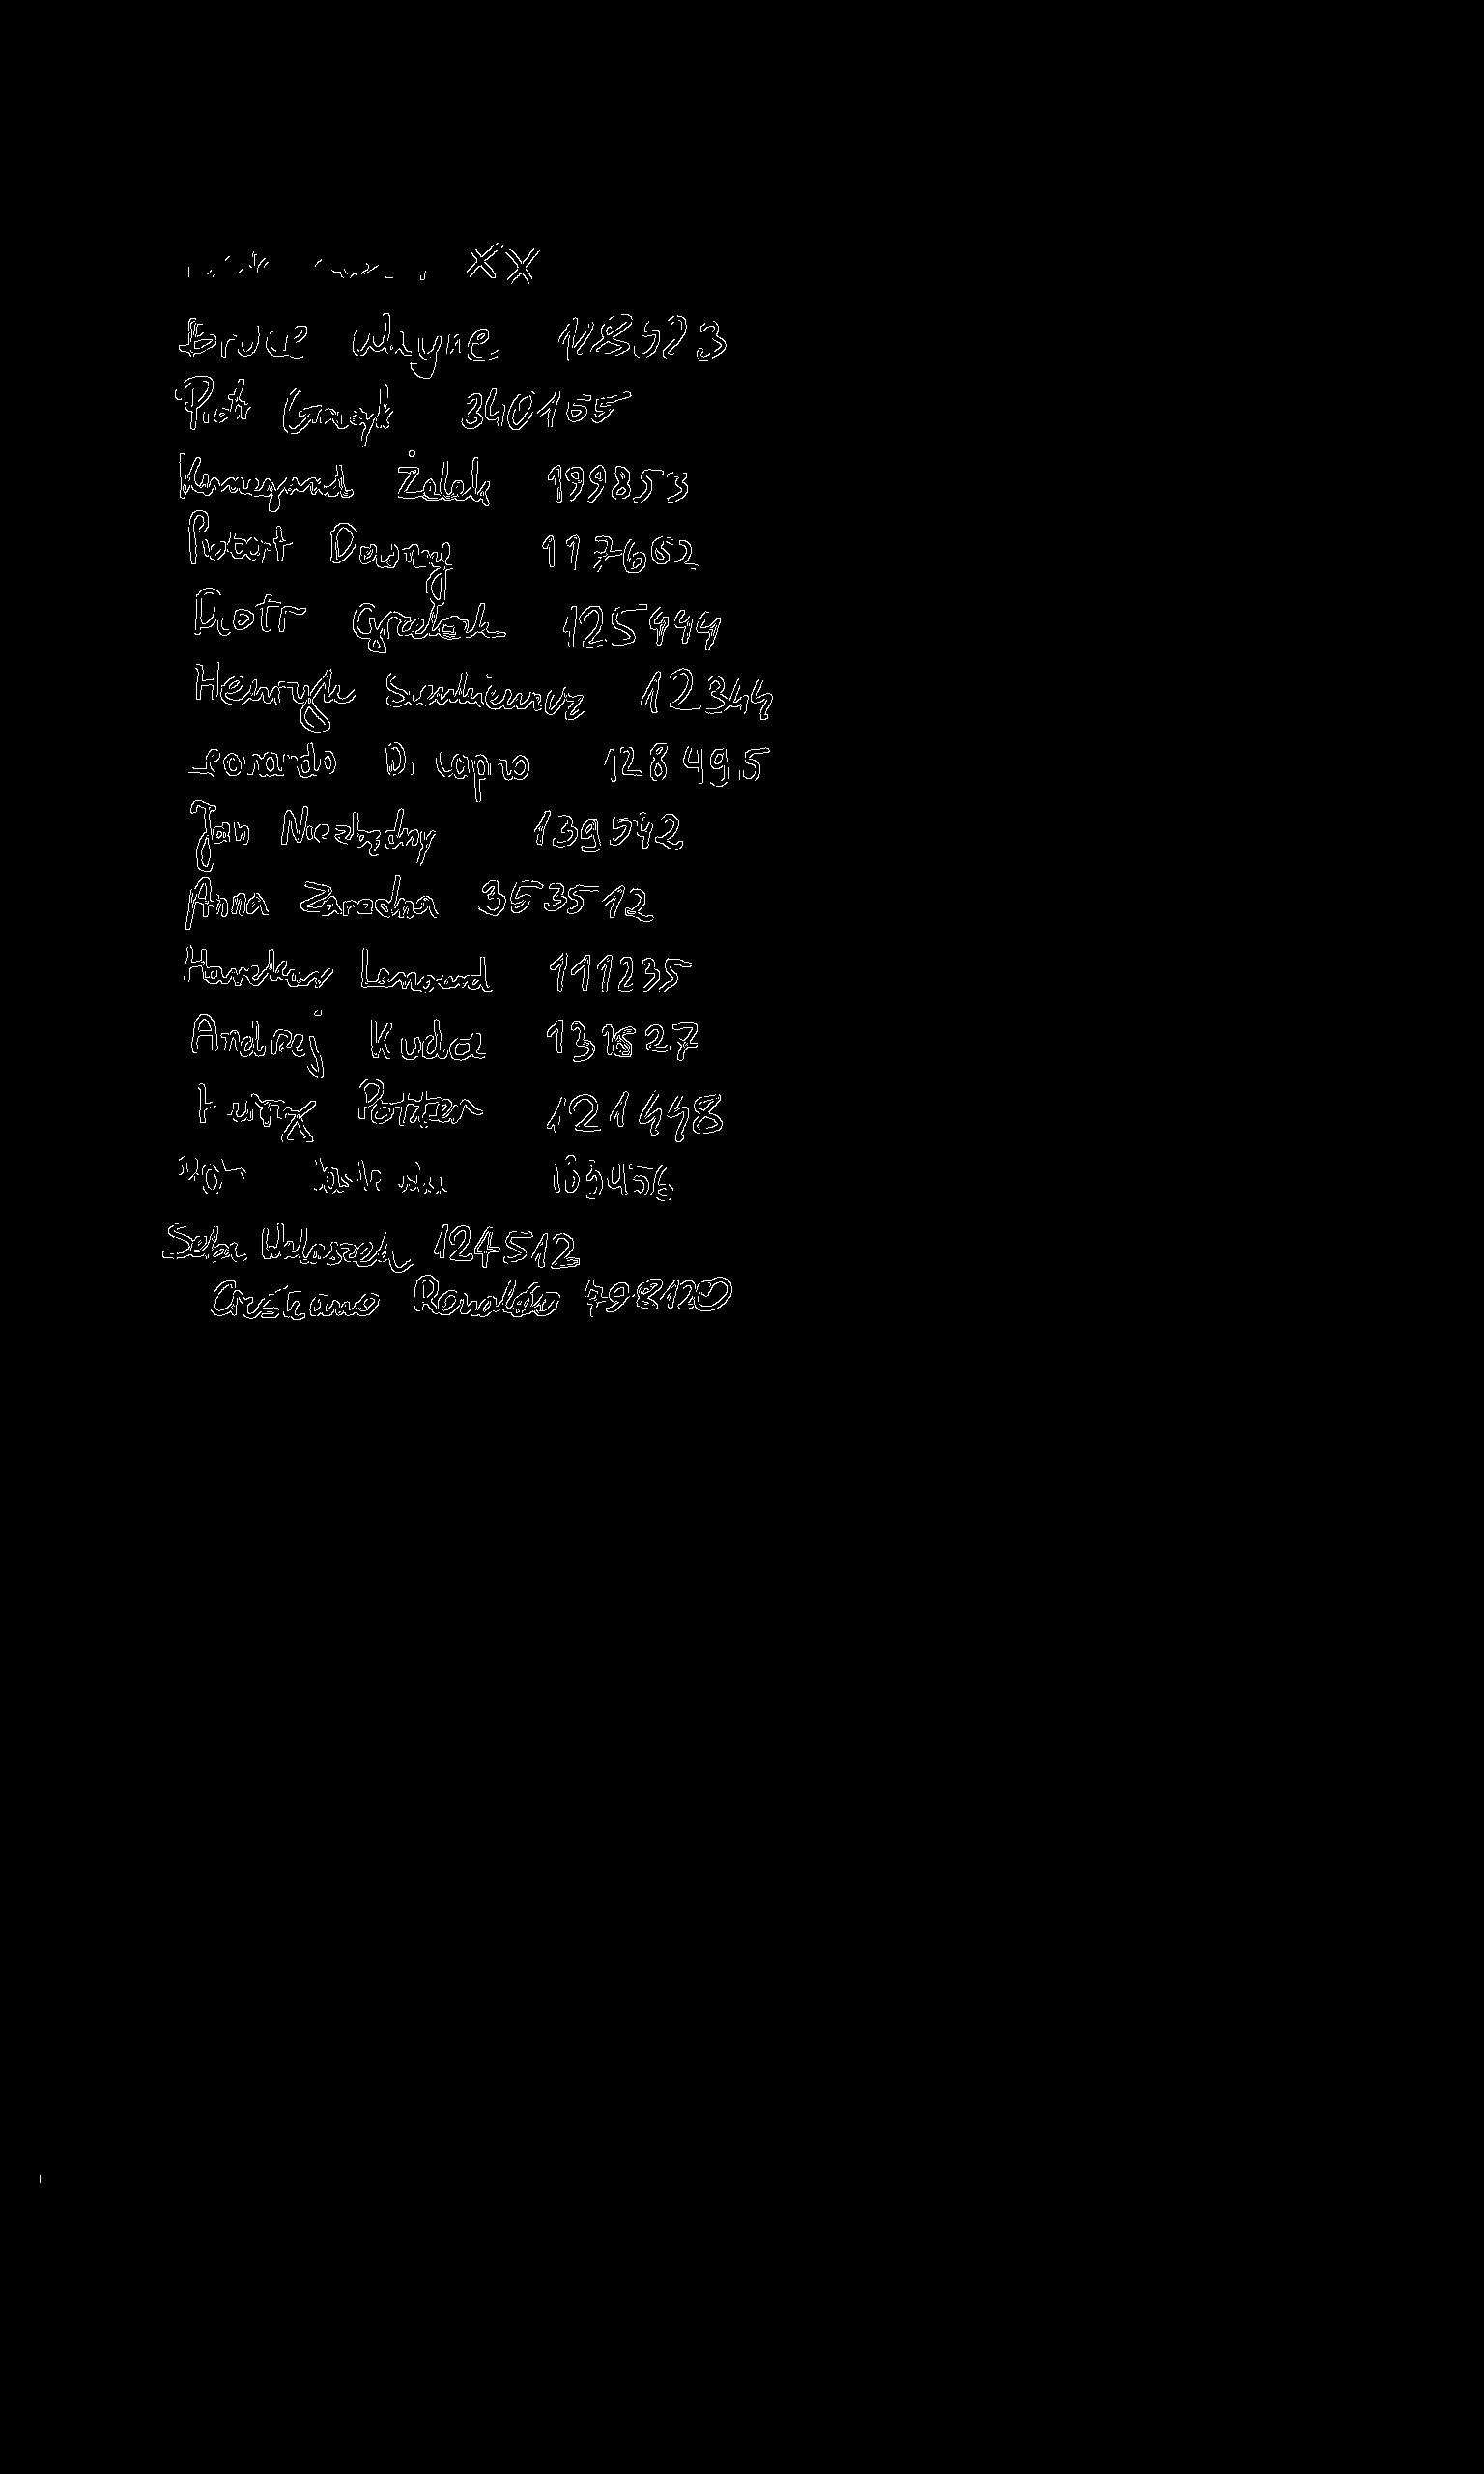 XX
Bruce Wayne 128523
Piotr 340165
Żelek 199853
Robert Downey 117662
Piotr Grzelak 125994
Henryk Sienkiewicz 12344
Leonardo Di Caprio 128495
Jan Niezbędny 139542
Anna Zaradna 353512
Lenoard 111235
Andrzej Kuda 131527
Potter 121448
139456
Seba Walaszek 124512
Crestiano Ronaldo 798120